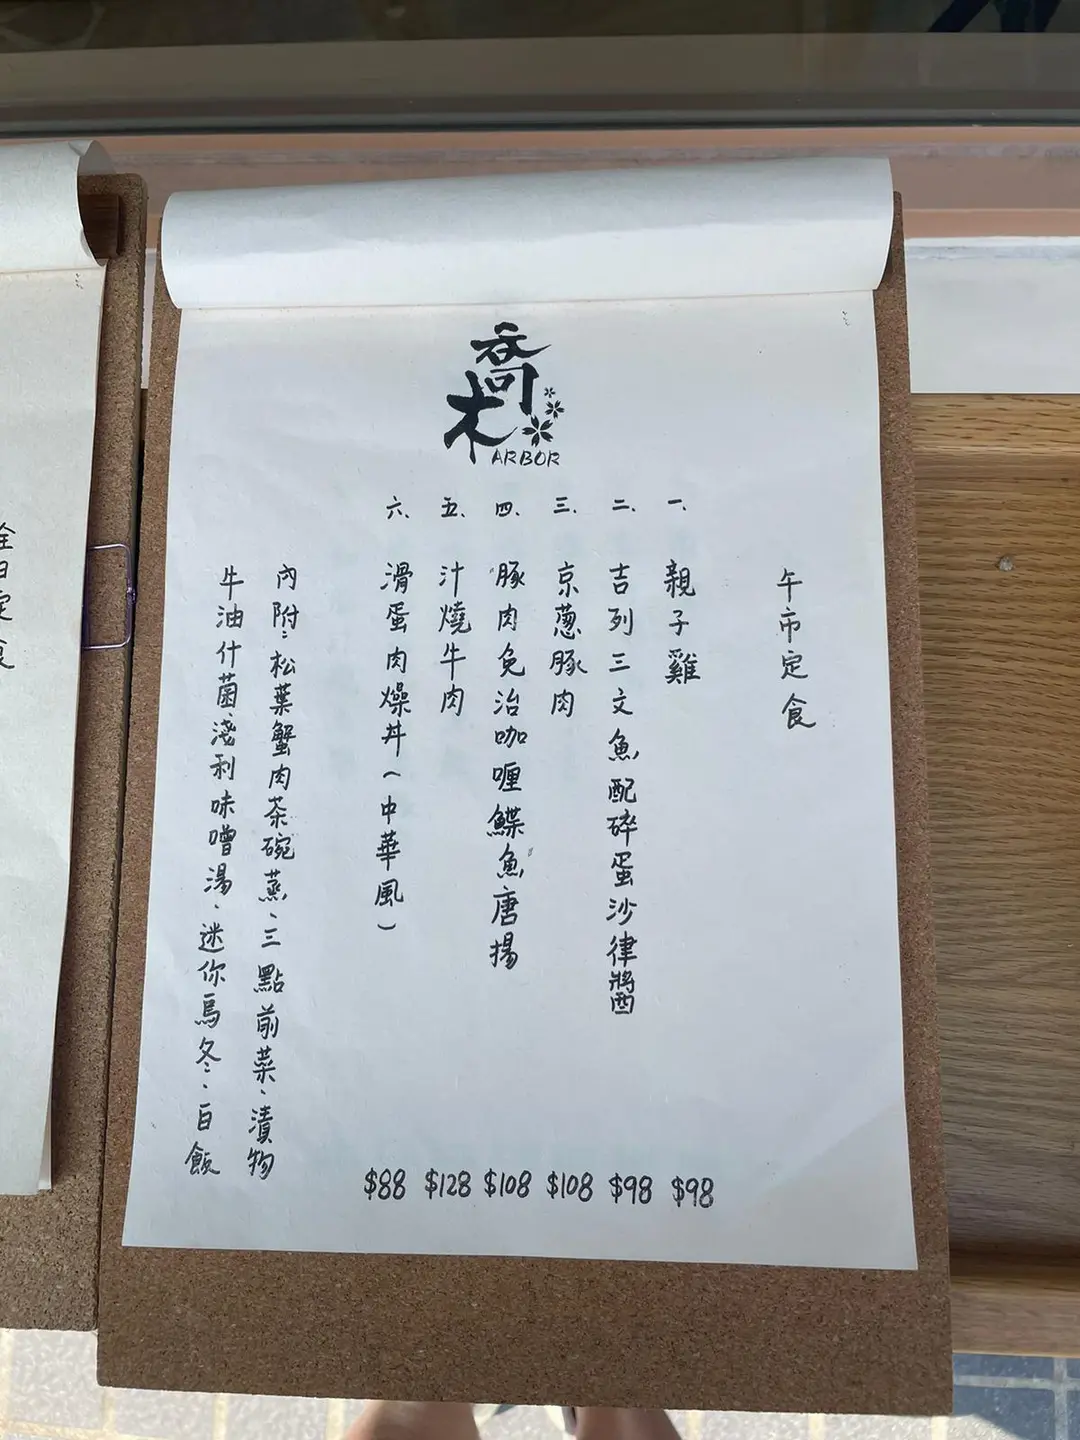 喬木
ARBOR
午市定食
一、親子雞 $98
二、吉列三文魚配碎蛋沙律醬 $98
三、京蔥豚肉 $108
四、豚肉免治咖喱鰈魚唐揚 $108
五、汁燒牛肉 $128
六、滑蛋肉燥丼(中華風) $88
內附:松葉蟹肉茶碗蒸、三點前菜、漬物
牛油什菌、淺利味噌湯、迷你烏冬、白飯
全日定食